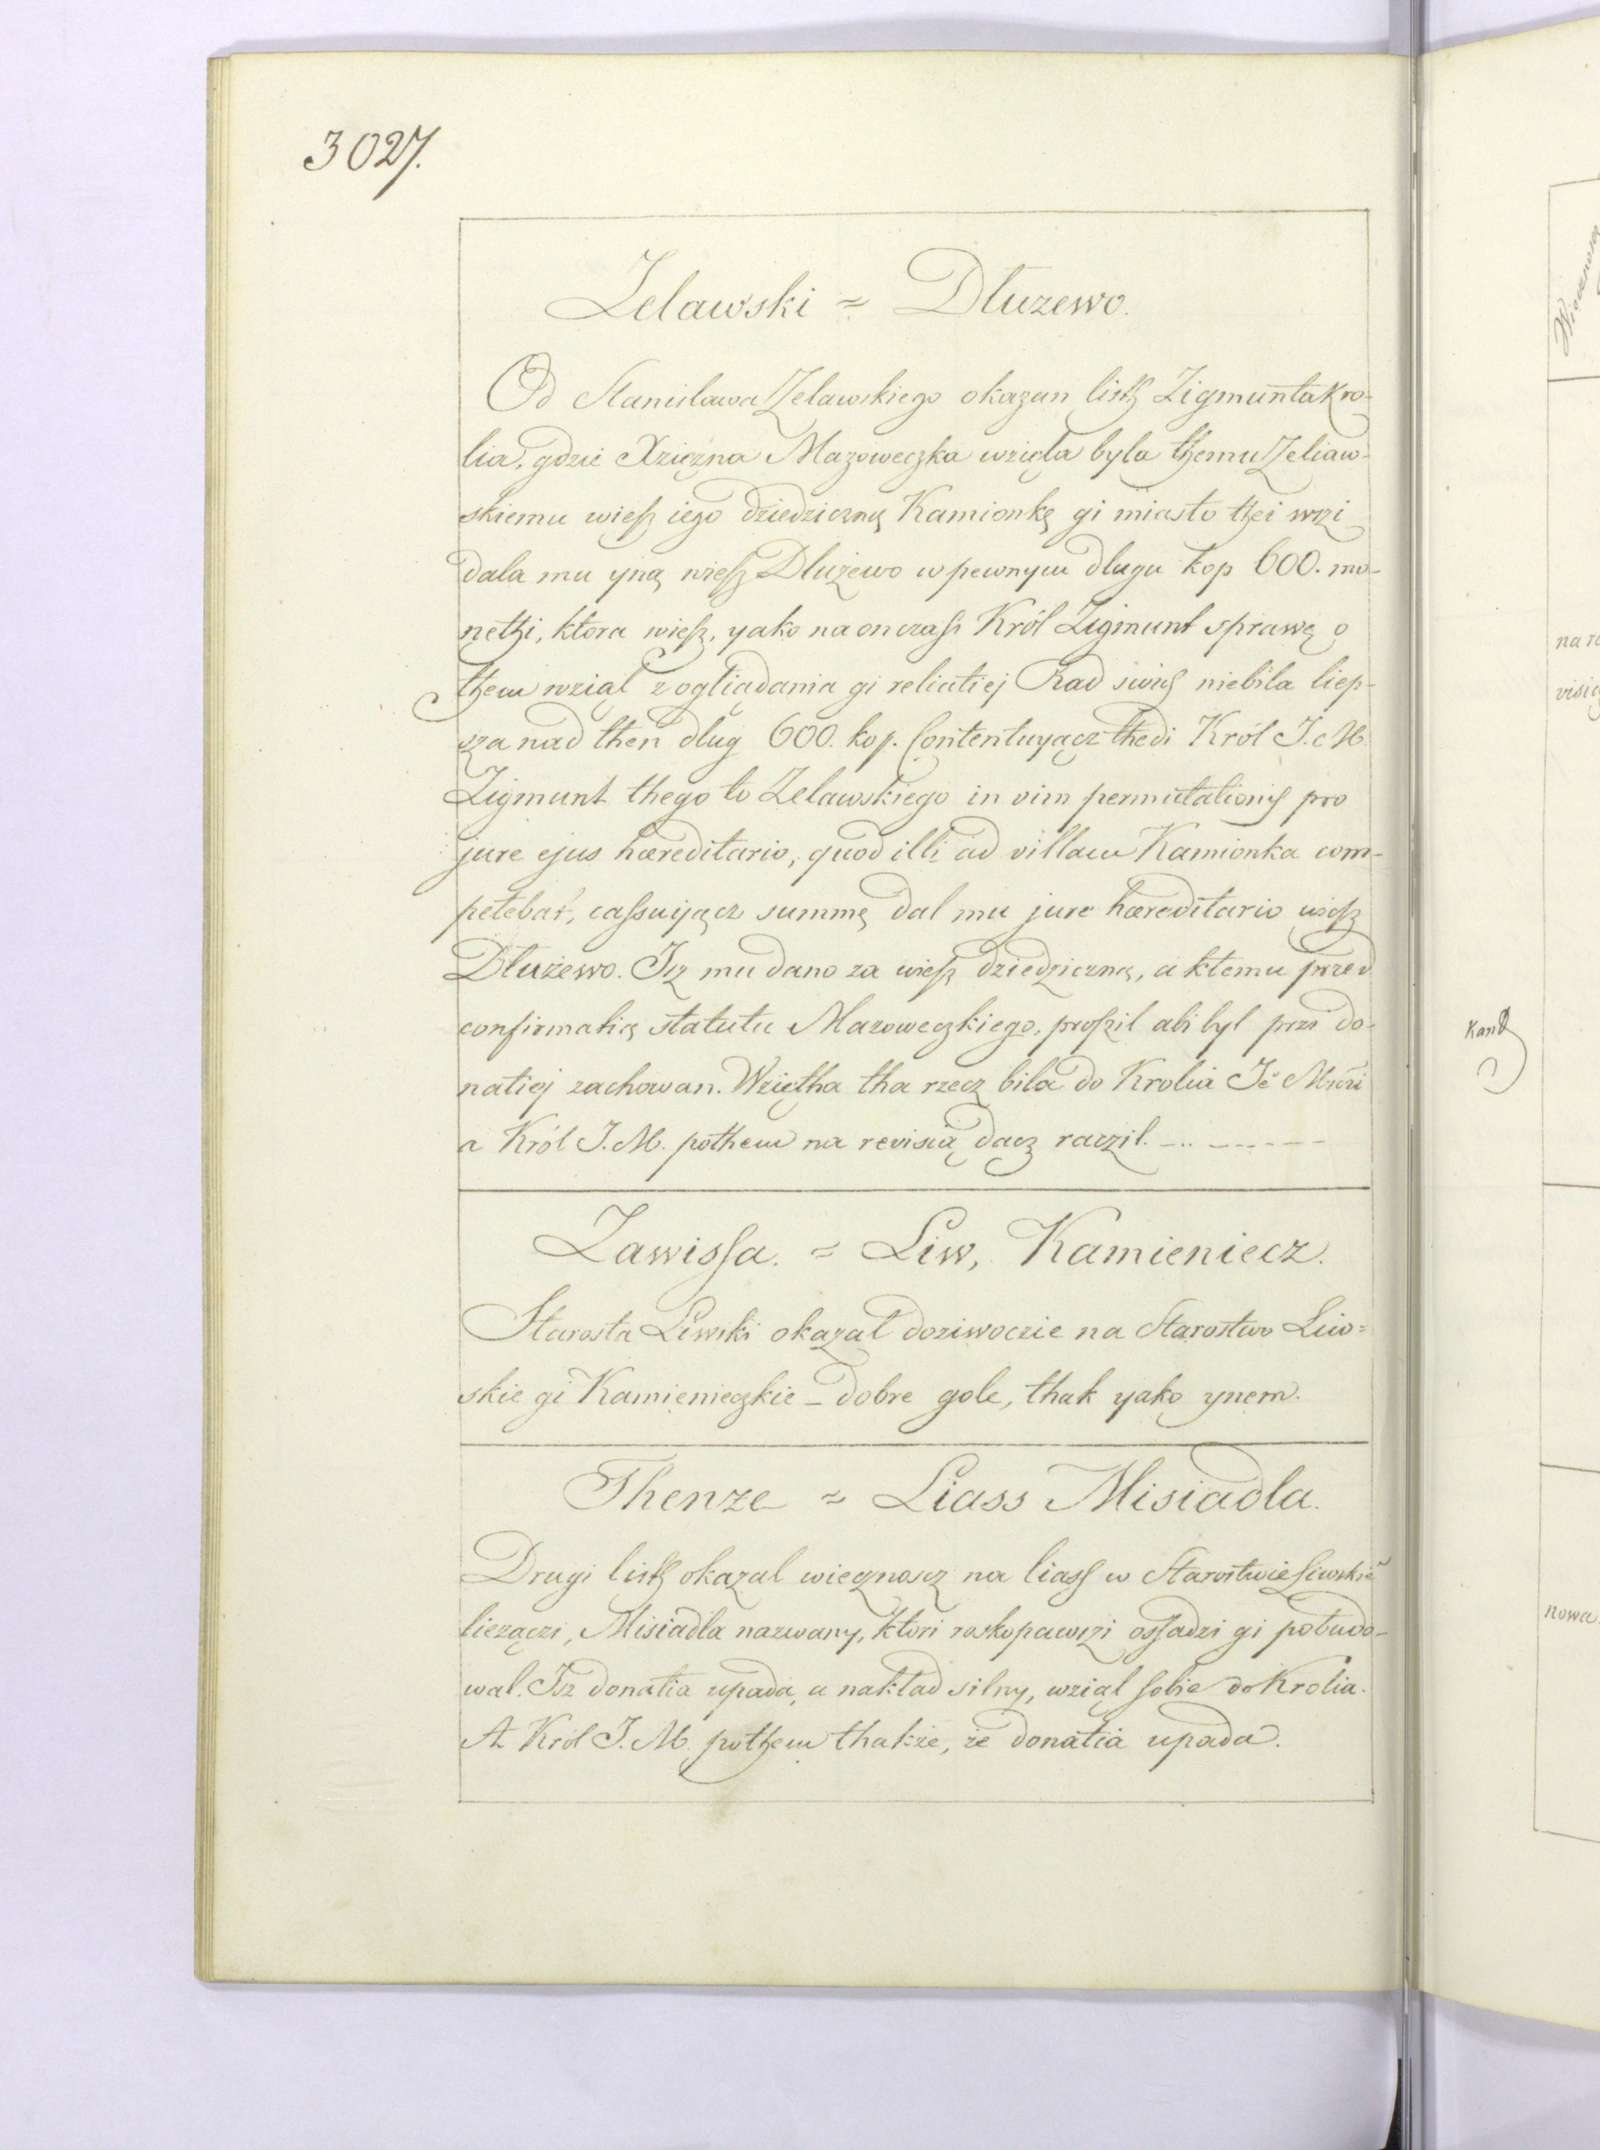 3027.
Zelawski = Dłuzewo.
Od Stanisława Zelawskiego okazan listh Zigmunta Kro-
lia, gdzie Xziężna Mazoweczka wzięła byla themu Zeliaw-
skiemu wiesz iego dziedziczną Kamionkę gi miasto thei wzi
dala mu yną wiesz Dlużewo w pewnym dlugu kop 600. mo-
nethi, ktora wiesz, yako na onczass Król Zigmunt sprawę o
them wziąl z ogliądania gi reliatiej Rad swich niebila liep-
sza nad then dlug 600. kop. Contentuyącz thedi Król J. M.
Zigmunt thego to Zelawskiego in vim permutationis pro
jure ejus hæreditario, quod illi ad villam Kamionka com-
petebat, cassuijącz summę dal mu jure hæreditario wiesz
Dłużewo. Isz mu dano za wiesz dziedziczną, a ktemu przed
confirmatią statutu Mazoweczkiego, prosził abi byl przi do-
natiej zachowan. Wziętha tha rzecz bila do Krolia Je Mczi
a Król J. M. pothem na revisią dacz raczil.
Zawissa. = Liw, Kamieniecz.
Starosta Liwski okazał doziwoczie na Starostwo Liw=
skie gi Kamienieczkie _ dobre gole, thak yako ynem.
Thenze = Liass Misiadla.
Drugi listh okazal wiecznoscz na liass w Starostwie Liwskie
liezączi, Misiadla nazwany, ktori roskopawszi ossadzi gi pobudo-
wal. Isz donatia upada, a nakład silny, wziąl sobie do Krolia.
A Król J. M. pothem thakże, że donatia upada.
nowa